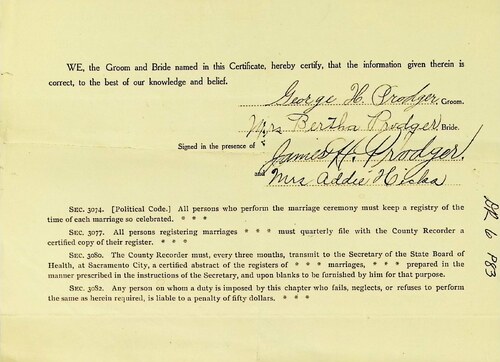 WE, the Groom and Bride named in this Certificate, hereby certify, that the information given therein is
correct, to the best of our knowledge and belief.
George H. Prodger, Groom.
Mrs Bertha Prodger Bride.
Signed in the presence of
James H. Prodger.
and Mrs Addie Hicks
SEC. 3074. [Political Code.] All persons who perform the marriage ceremony must keep a registry of the
time of each marriage so celebrated. * * *
SEC. 3077. All persons registering marriages * * * must quarterly file with the County Recorder a
certified copy of their register. * * *
SEC. 3080. The County Recorder must, every three months, transmit to the Secretary of the State Board of
Health, at Sacramento City, a certified abstract of the registers of * * * marriages, * * * prepared in the
manner prescribed in the instructions of the Secretary, and upon blanks to be furnished by him for that purpose.
SEC. 3082. Any person on whom a duty is imposed by this chapter who fails, neglects, or refuses to perform
the same as herein required, is liable to a penalty of fifty dollars. * * *
6 P83